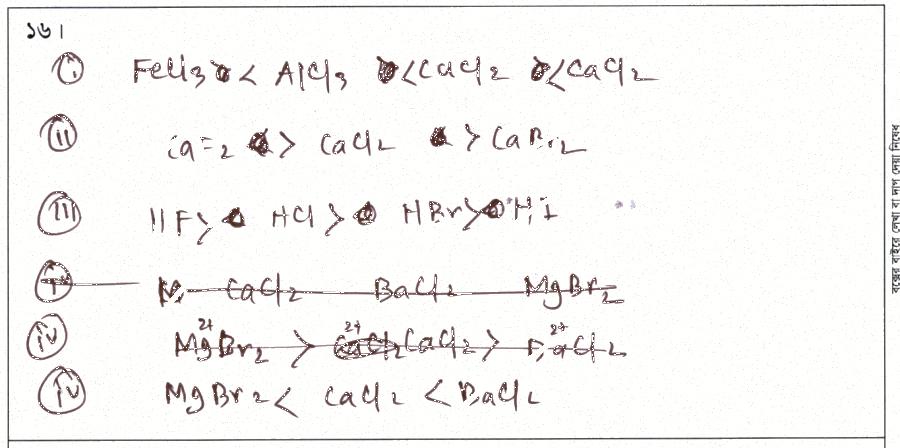 ১৬।
(i) FeCl3 < AlCl3 < CaCl2 < CaCl2
(ii) CaF2 > CaCl2 > CaBr2
(iii) HF > HCl > HBr > HI
(iv) CaCl2 BaCl2 MgBr2
(iv) MgBr2 > CaCl2 >
(iv) MgBr2 < CaCl2 < BaCl2
বক্সের বাইরে লেখা বা দাগ দেয়া নিষেধ